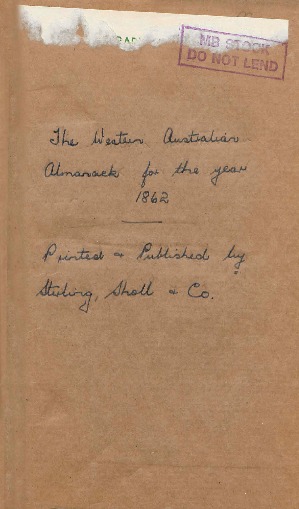 MB STOCK
DO NOT LEND
The Western Australian
Almanack for the year
1862
Printed & Published by
Stirling, Sholl & Co.